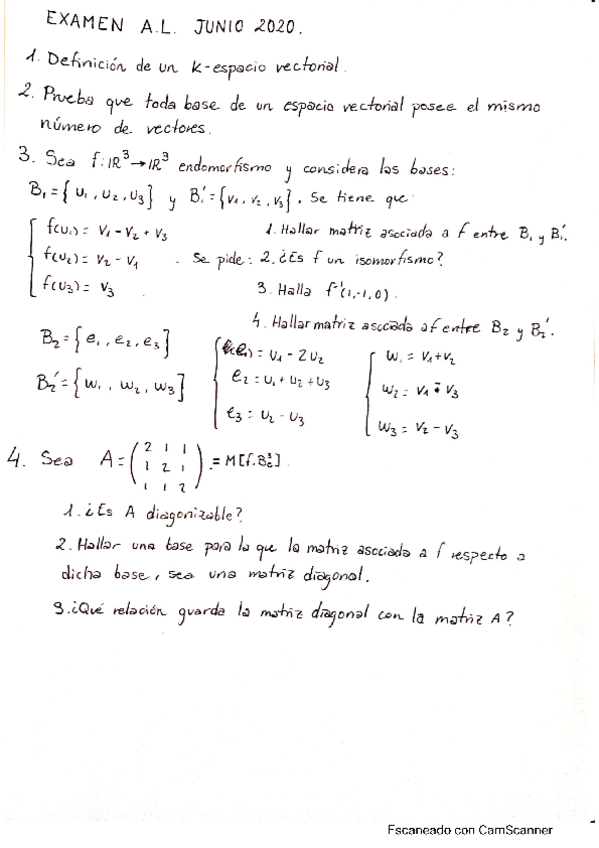 EXAMEN A.L. JUNIO 2020.
1. Definición de un K-espacio vectorial.
2. Prueba que toda base de un espacio vectorial posee el mismo
número de vectores.
3. Sea f: ℝ³→ℝ³ endomorfismo y considera las bases:
B₁={u₁, u₂, u₃} y B₁'={v₁, v₂, v₃}. Se tiene que:
f(u₁) = v₁ - v₂ + v₃ 1. Hallar matriz asociada a f entre B₁ y B₁'.
f(u₂) = v₂ - v₁ Se pide: 2. ¿Es f un isomorfismo?
f(u₃) = v₃ 3. Halla f⁻¹(1,-1,0).
4. Hallar matriz asociada a f entre B₂ y B₂'.
B₂={e₁, e₂, e₃} = u₁ - 2u₂ w₁ = v₁+v₂
B₂'={w₁, w₂, w₃} e₂ = u₁ + u₂ + u₃ w₂ = v₁ v₃
e₃ = u₂ - u₃ w₃ = v₂ - v₃
4. Sea A = (2 1 1
1 2 1
1 1 2) = M[f.B].
1. ¿Es A diagonizable?
2. Hallar una base para la que la matriz asociada a f respecto a
dicha base, sea una matriz diagonal.
3. ¿Qué relación guarda la matriz diagonal con la matriz A?
Escaneado con CamScanner